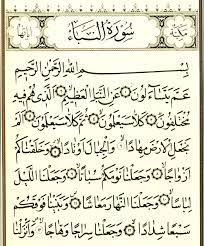 مكية سُورَةُ النَّبَأِ آياتها
بِسْمِ اللَّهِ الرَّحْمَٰنِ الرَّحِيمِ
عَمَّ يَتَسَاءَلُونَ عَنِ النَّبَإِ الْعَظِيمِ الَّذِي هُمْ فِيهِ
مُخْتَلِفُونَ كَلَّا سَيَعْلَمُونَ ثُمَّ كَلَّا سَيَعْلَمُونَ أَلَمْ
نَجْعَلِ الْأَرْضَ مِهَادًا وَالْجِبَالَ أَوْتَادًا وَخَلَقْنَاكُمْ
أَزْوَاجًا وَجَعَلْنَا نَوْمَكُمْ سُبَاتًا وَجَعَلْنَا اللَّيْلَ
لِبَاسًا وَجَعَلْنَا النَّهَارَ مَعَاشًا وَبَنَيْنَا فَوْقَكُمْ
سَبْعًا شِدَادًا وَجَعَلْنَا سِرَاجًا وَهَّاجًا وَأَنزَلْنَا